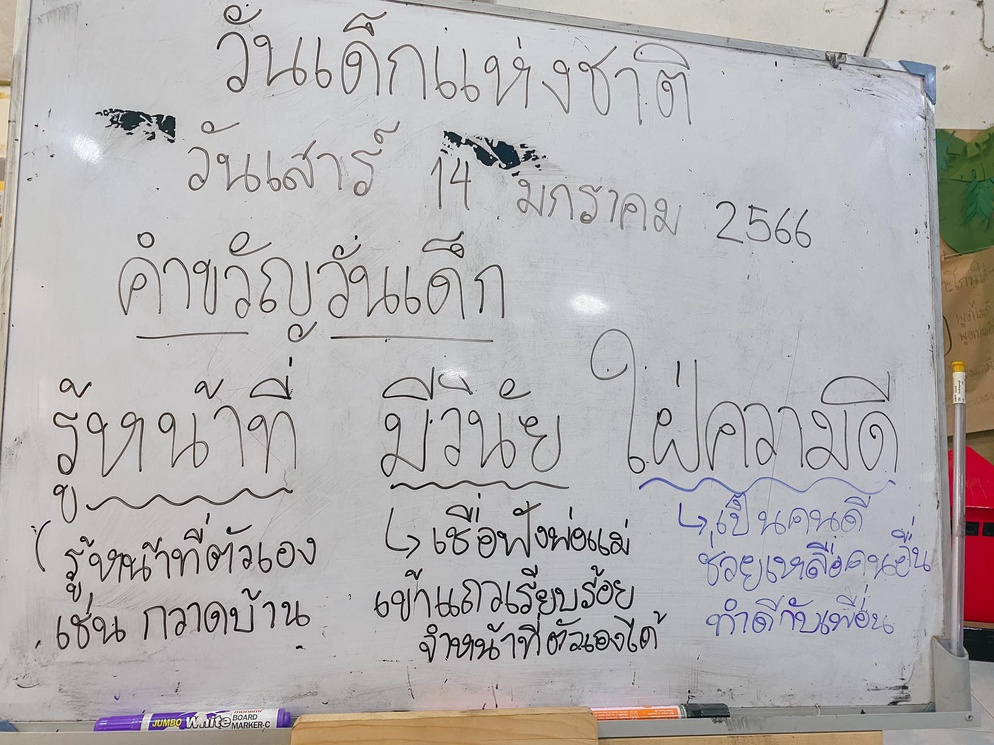 วันเด็กแห่งชาติ
วันเสาร์ 14 มกราคม 2566
คำขวัญวันเด็ก
รู้หน้าที่ มีวินัย ใฝ่ความดี
รู้หน้าที่ตัวเอง
เช่น กวาดบ้าน
เชื่อฟังพ่อแม่
เข้าแถวเรียบร้อย
จำหน้าที่ตัวเองได้
เป็นคนดี
ช่วยเหลือคนอื่น
ทำดีกับเพื่อน
JUMBO White BOARD MARKER-C